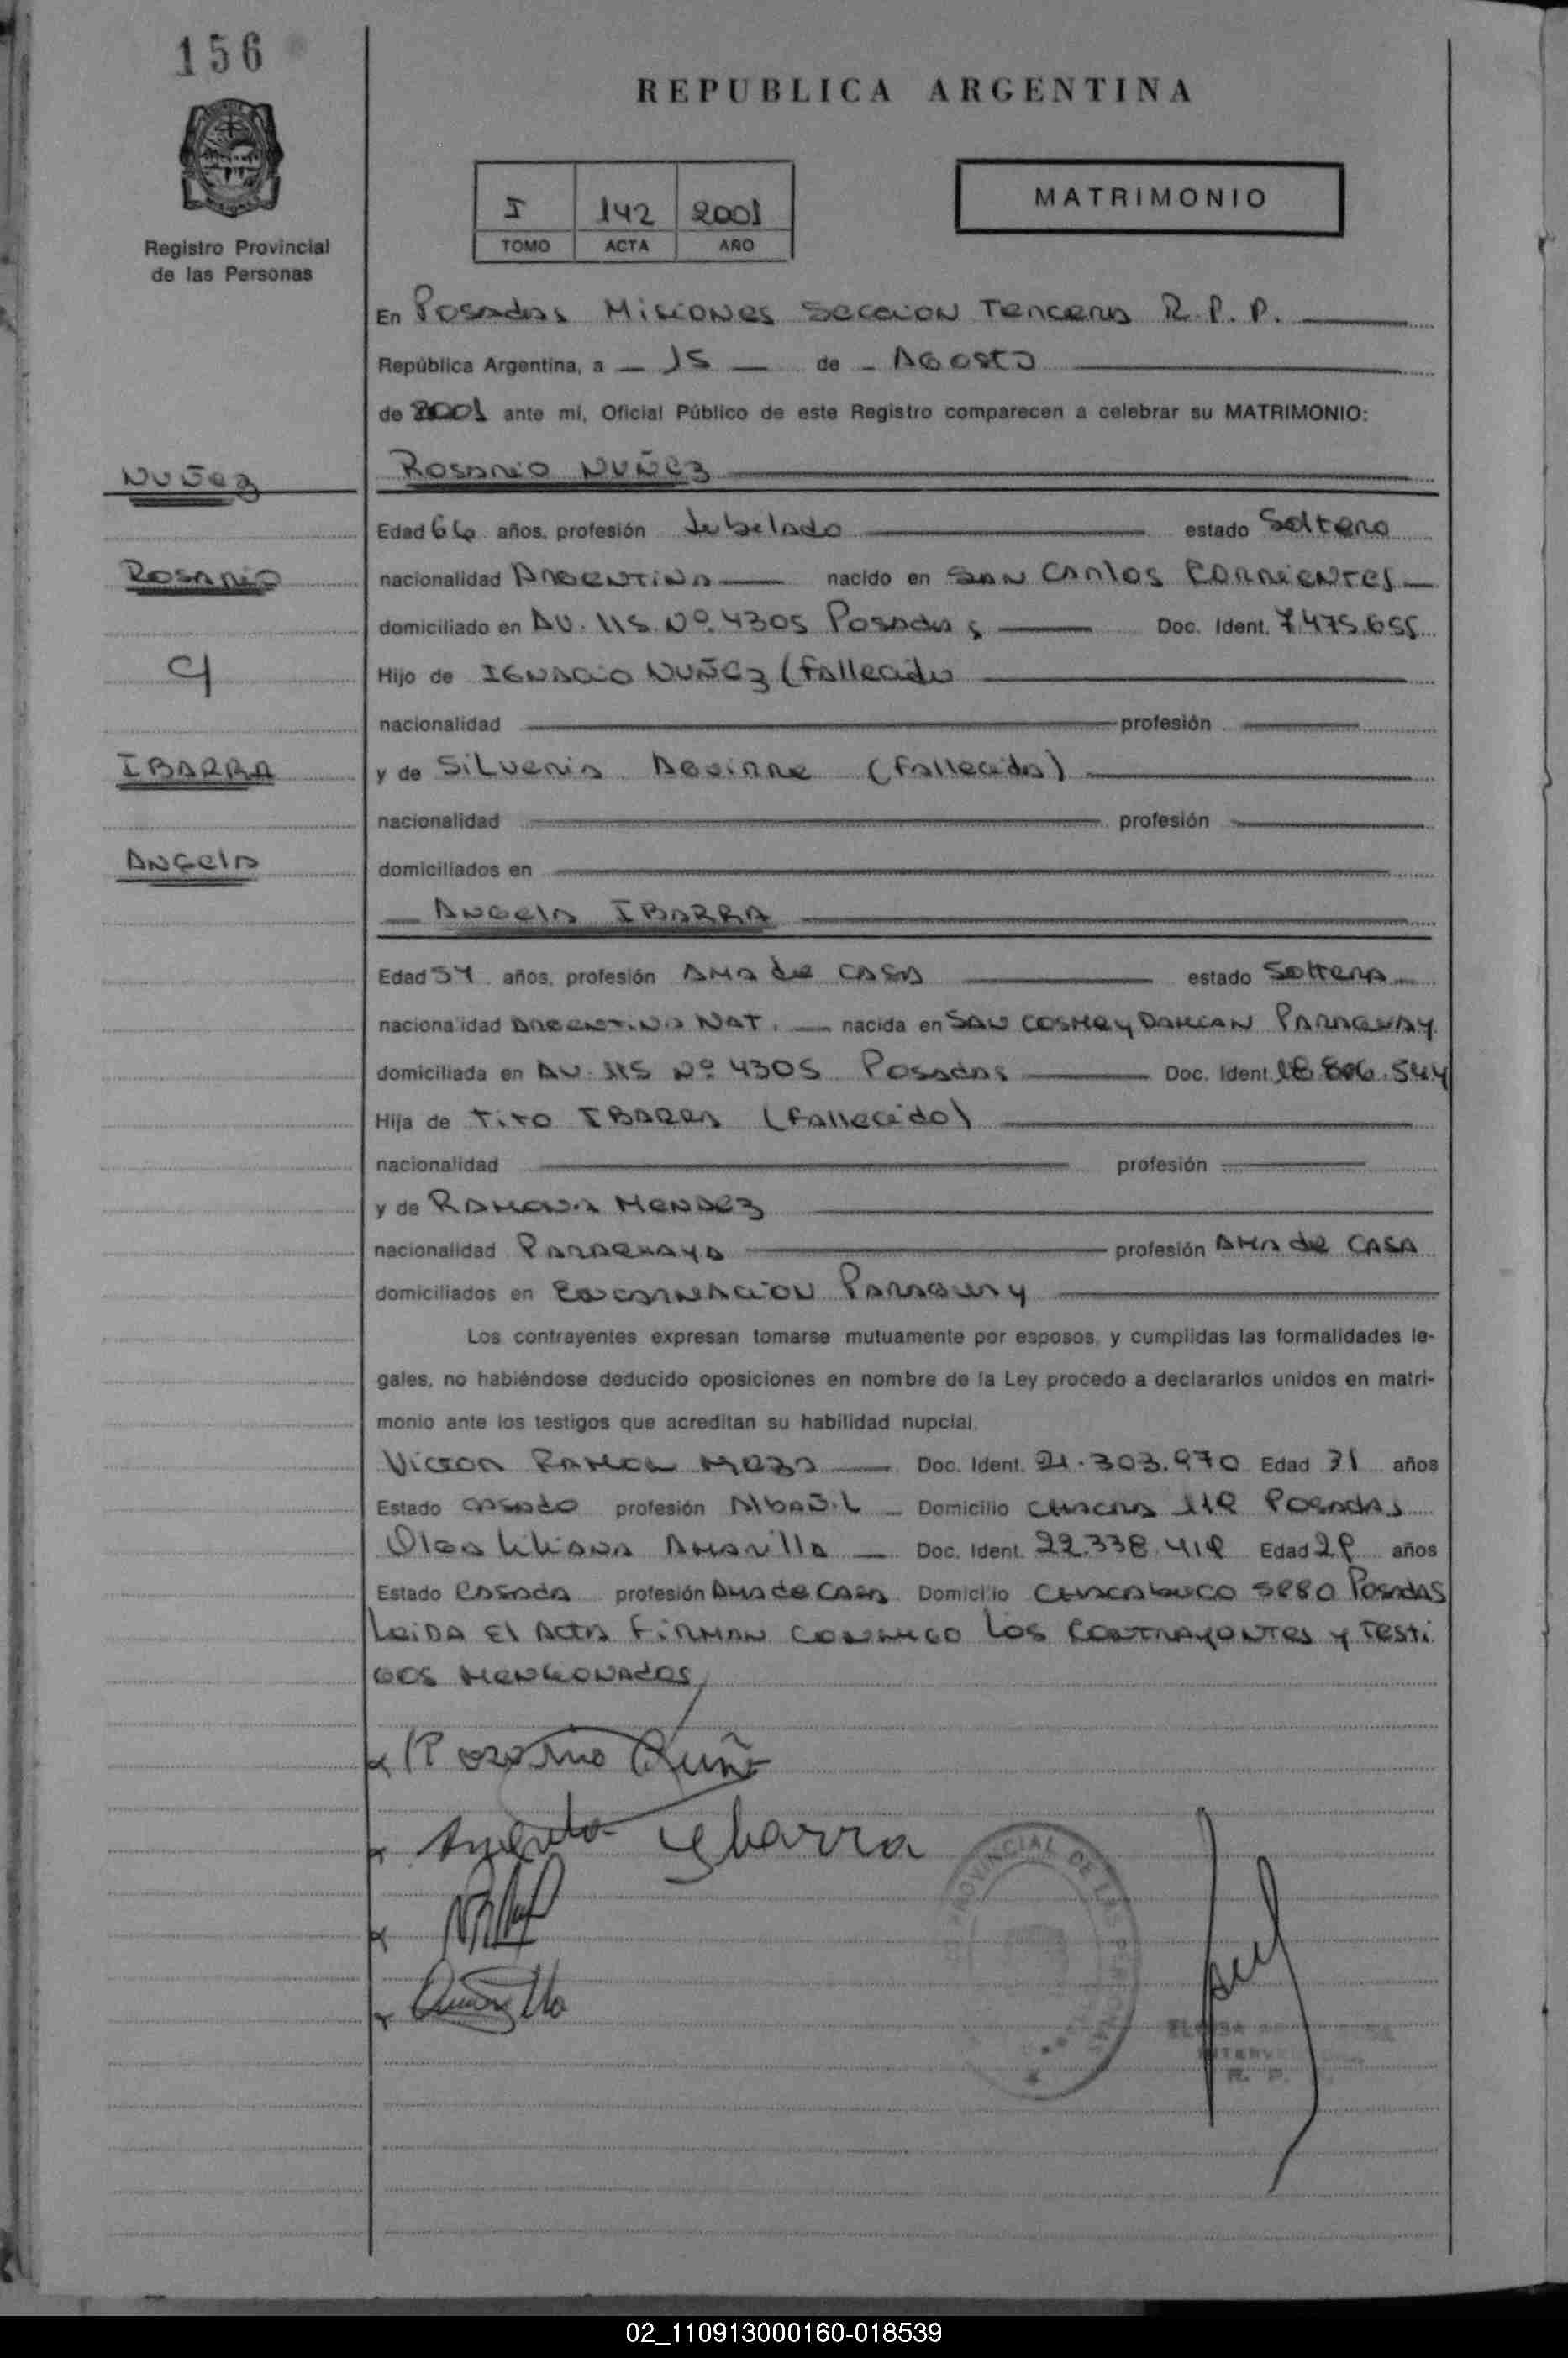 156
REPUBLICA ARGENTINA
I 142 2001
TOMO ACTA AÑO
MATRIMONIO
Registro Provincial
de las Personas
En Posadas Misiones Seccion Tercera R.P.P.
República Argentina, a 15 de Agosto
de 2001 ante mí, Oficial Público de este Registro comparecen a celebrar su MATRIMONIO:
NUÑez
Rosario NUÑez
Edad 66 años, profesión Jubilado estado Soltero
Rosario
nacionalidad Argentina nacido en San Carlos Corrientes
domiciliado en AV. 115 Nº 4305 Posadas Doc. Ident. 7.475.655
C/
Hijo de Ignacio NUÑez (Fallecido
nacionalidad profesión
IBARRA
y de Silveria Aguirre (Fallecida)
nacionalidad profesión
Angela
domiciliados en
Angela IBARRA
Edad 54 años, profesión Ama de CASA estado Soltera
nacionalidad Argentina NAT. nacida en SAN COSME y DAMIAN PARAGUAY
domiciliada en AV. 115 Nº 4305 Posadas Doc. Ident. 18.806.544
Hija de Tito IBARRA (Fallecido)
nacionalidad profesión
y de Ramona Mendez
nacionalidad Paraguaya profesión Ama de CASA
domiciliados en Encarnacion Paraguay
Los contrayentes expresan tomarse mutuamente por esposos, y cumplidas las formalidades le-
gales, no habiéndose deducido oposiciones en nombre de la Ley procedo a declararlos unidos en matri-
monio ante los testigos que acreditan su habilidad nupcial.
Victor Ramon Meza Doc. Ident. 21.303.970 Edad 31 años
Estado casado profesión Albañil Domicilio Chacra 112 Posadas
Olga Liliana Amarilla Doc. Ident. 22.338.412 Edad 29 años
Estado Casada profesión Ama de Casa Domicilio Chacabuco 5280 Posadas
Leida El Acta Firman conmigo Los Contrayentes y Testi
gos Mencionados
Rosario Nuñe
Angela Ybarra
Amarilla
PROVINCIAL DE LAS PERSONAS
R. P.
02_110913000160-018539